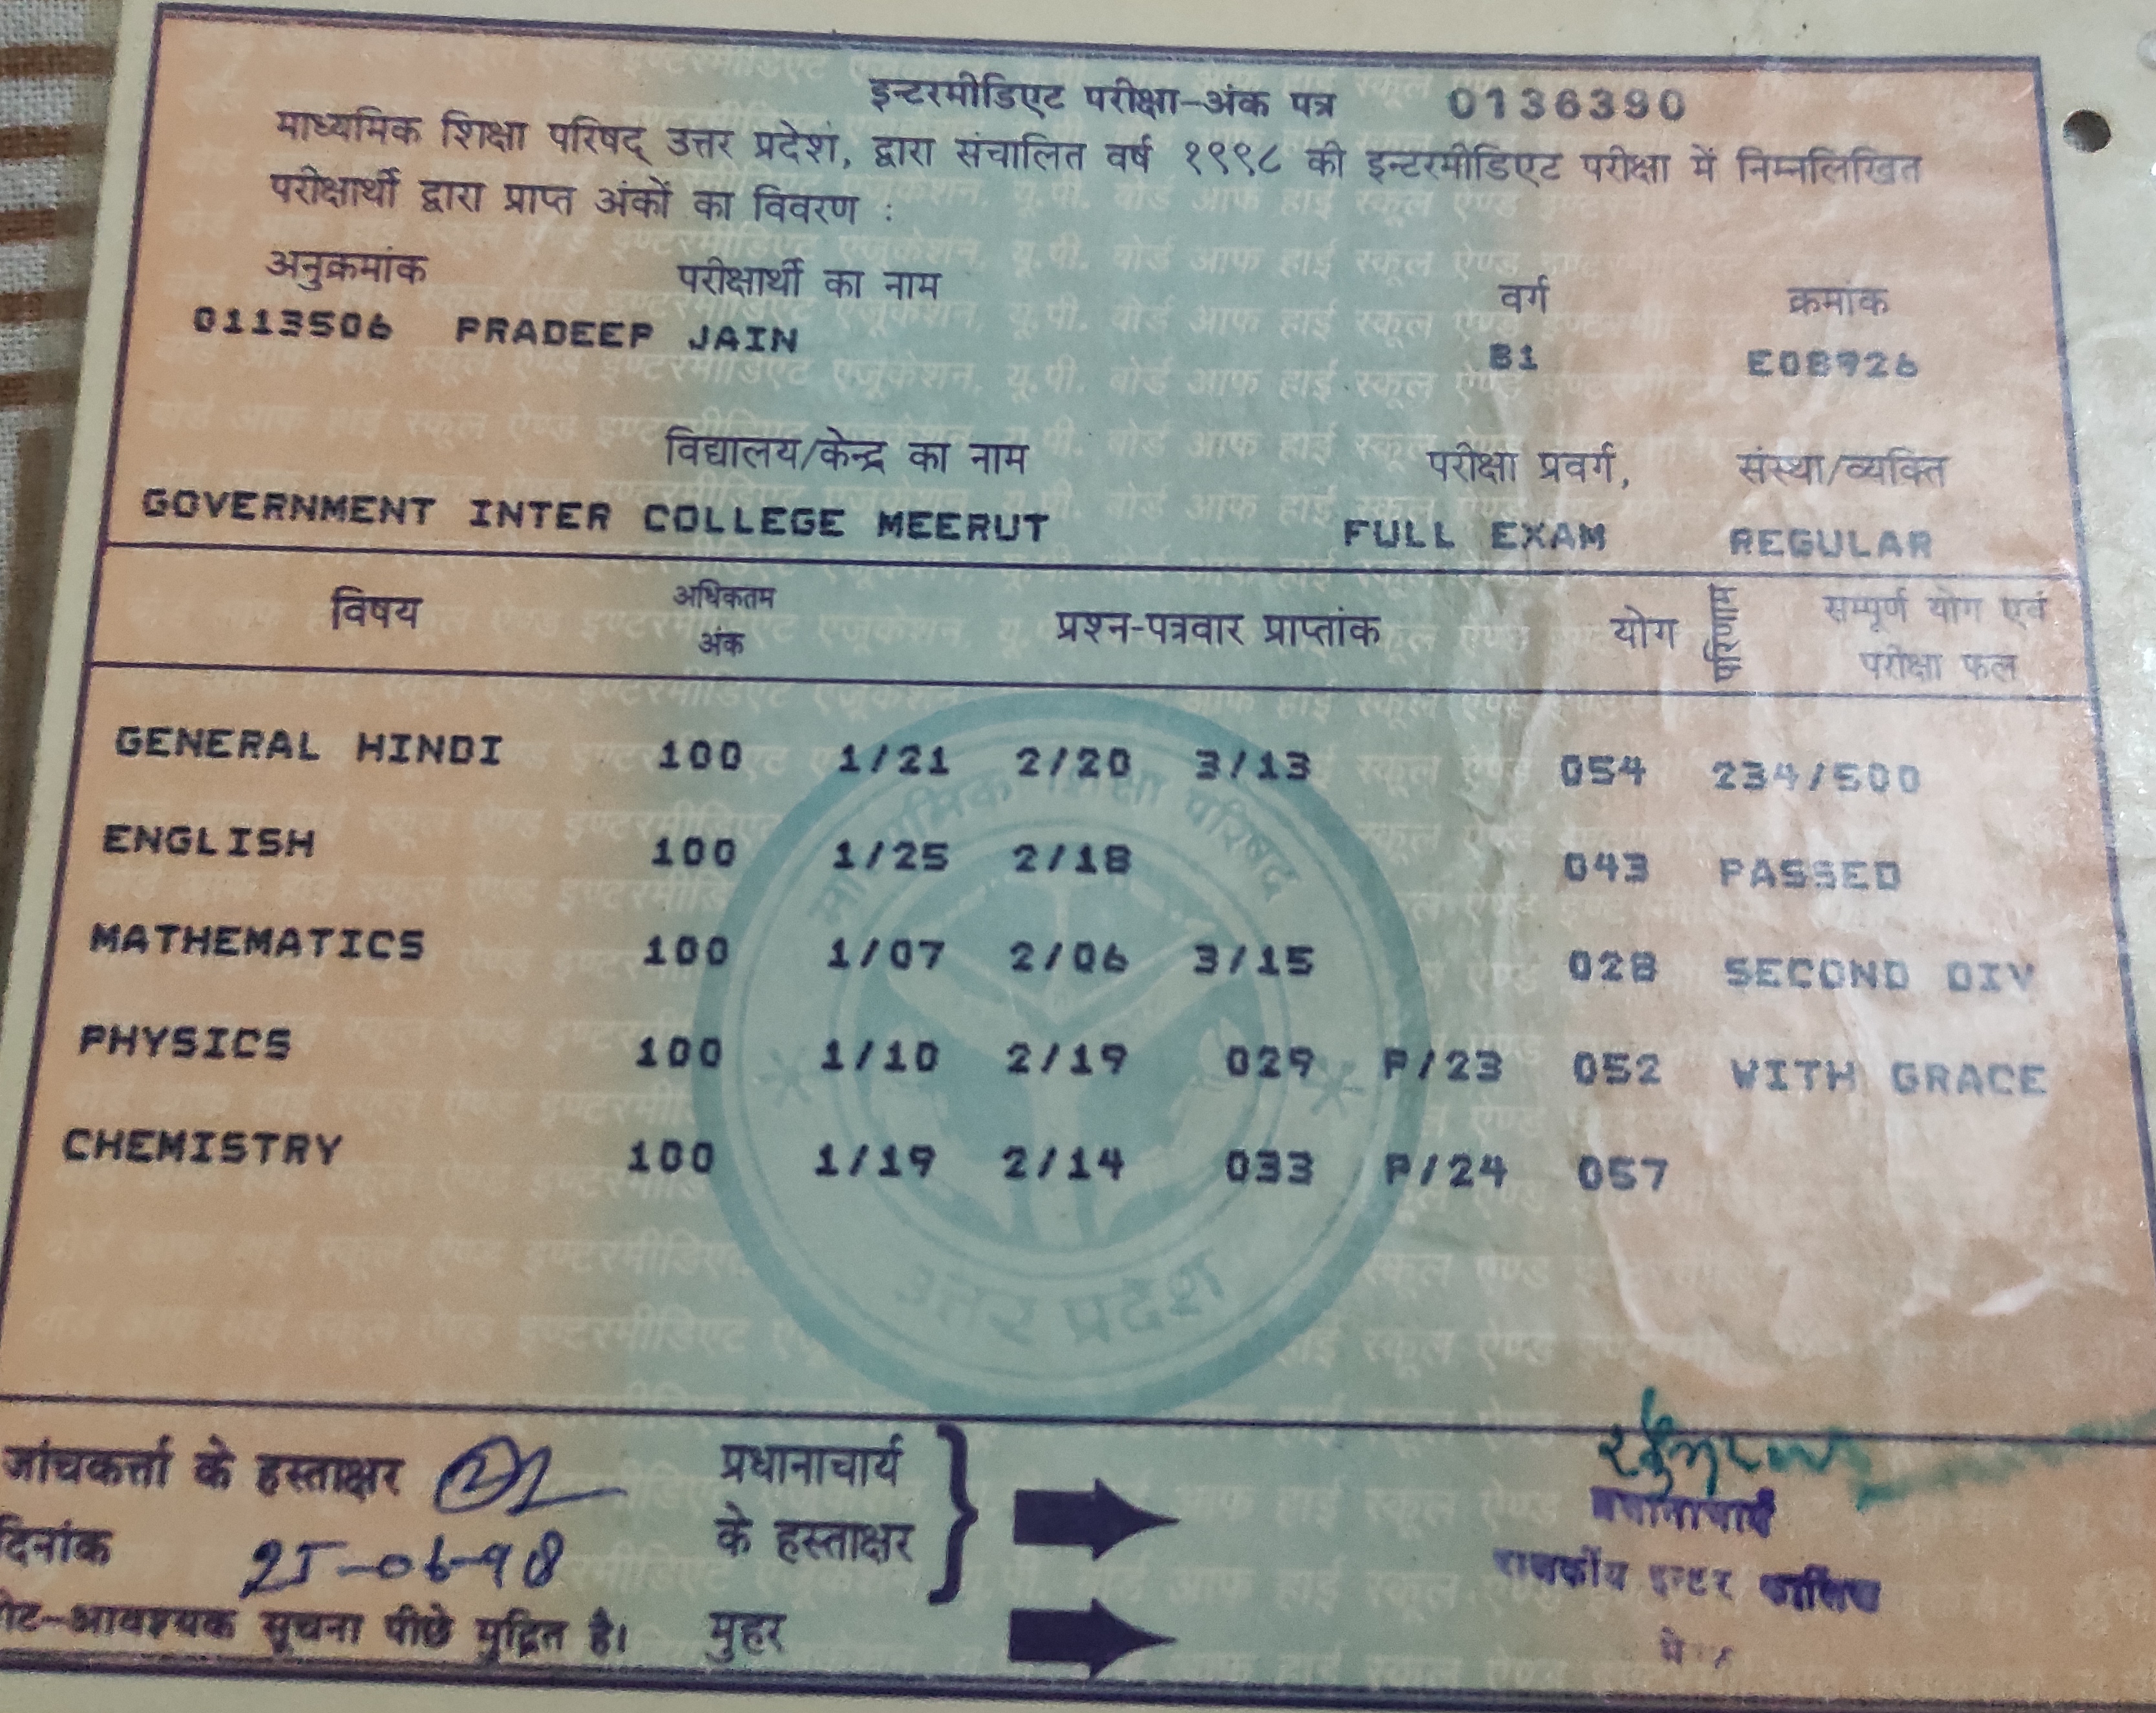 इन्टरमीडिएट परीक्षा-अंक पत्र 0136390
माध्यमिक शिक्षा परिषद् उत्तर प्रदेश, द्वारा संचालित वर्ष १९९८ की इन्टरमीडिएट परीक्षा में निम्नलिखित
परीक्षार्थी द्वारा प्राप्त अंकों का विवरण :
अनुक्रमांक परीक्षार्थी का नाम वर्ग क्रमांक
0113506 PRADEEP JAIN B1 E08926
विद्यालय/केन्द्र का नाम परीक्षा प्रवर्ग, संस्था/व्यक्ति
GOVERNMENT INTER COLLEGE MEERUT FULL EXAM REGULAR
विषय अधिकतम अंक प्रश्न-पत्रवार प्राप्तांक योग परिणाम सम्पूर्ण योग एवं परीक्षा फल
GENERAL HINDI 100 1/21 2/20 3/13 054 234/500
ENGLISH 100 1/25 2/18 043 PASSED
MATHEMATICS 100 1/07 2/06 3/15 028 SECOND DIV
PHYSICS 100 1/10 2/19 029 P/23 052 WITH GRACE
CHEMISTRY 100 1/19 2/14 033 P/24 057
माध्यमिक शिक्षा परिषद
उत्तर प्रदेश
जांचकर्त्ता के हस्ताक्षर प्रधानाचार्य
के हस्ताक्षर
दिनांक 25-06-98
नोट-आवश्यक सूचना पीछे मुद्रित है। मुहर
प्रधानाचार्य
राजकीय इन्टर कालिज